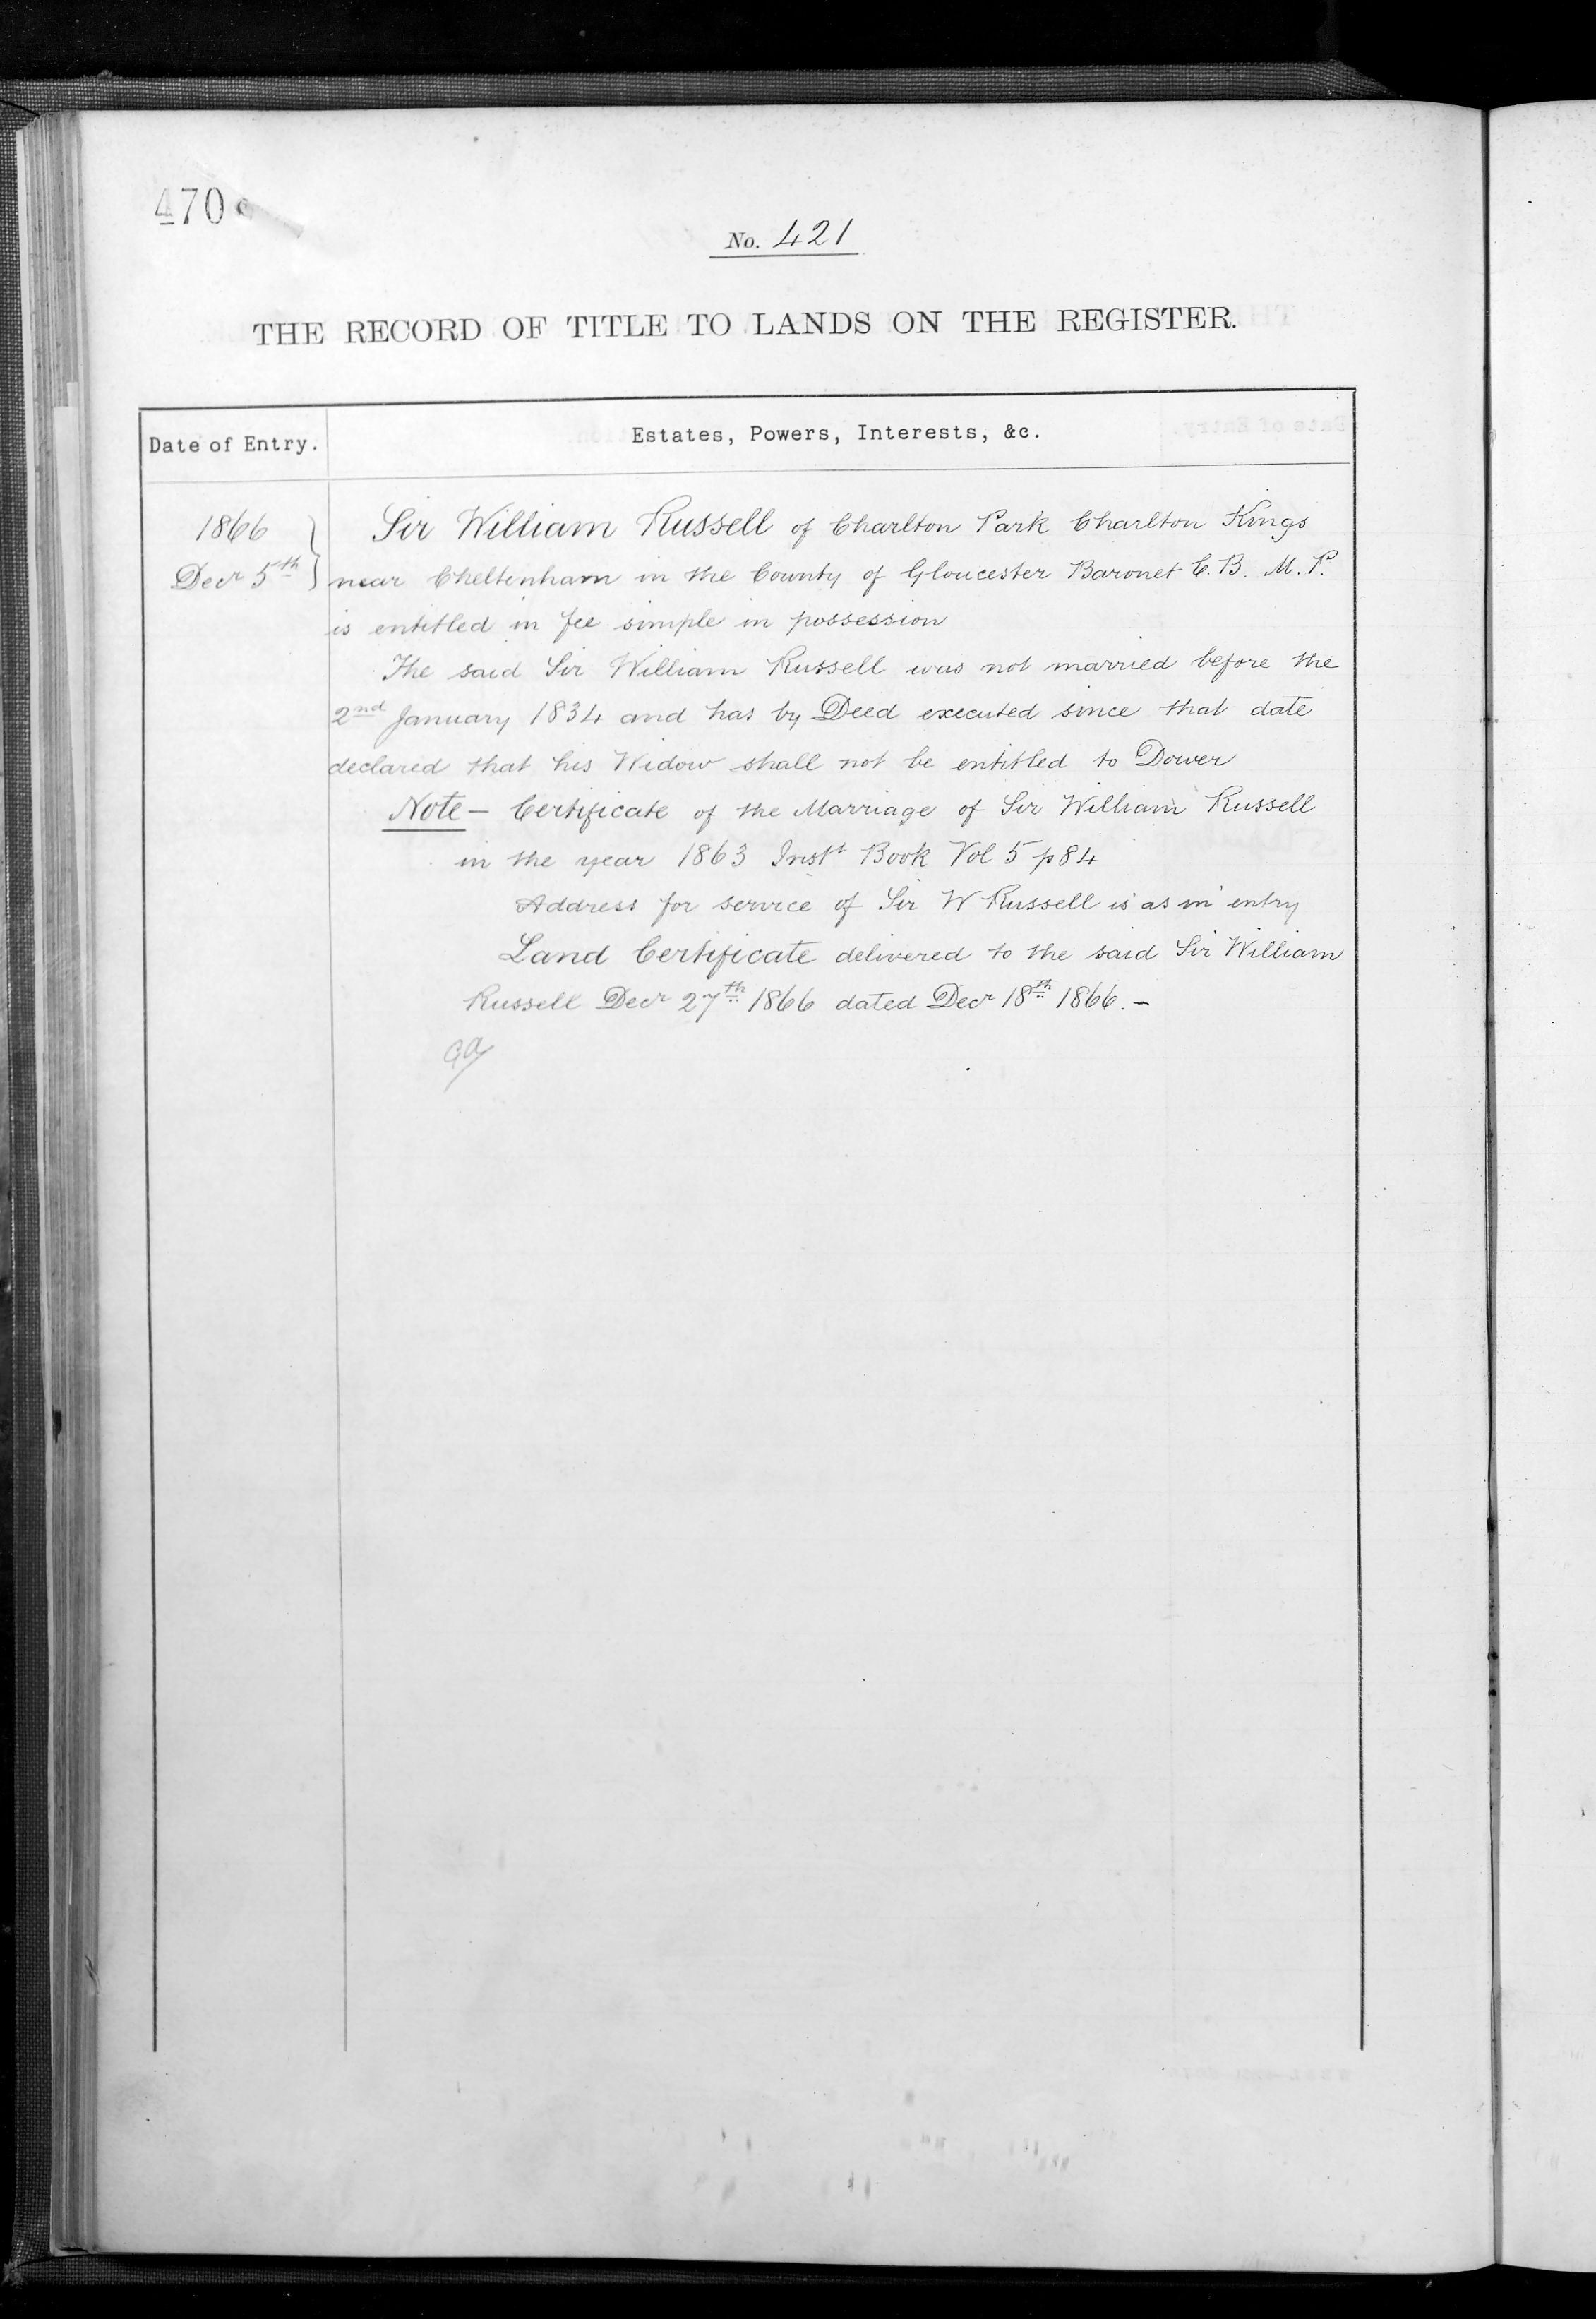 470
No. 421
THE RECORD OF TITLE TO LANDS ON THE REGISTER.
Date of Entry.
Estates, Powers, Interests, &c.
1866
Decr 5th
Sir William Russell of Charlton Park Charlton Kings
near Cheltenham in the County of Gloucester Baronet C.B. M.P.
is entitled in fee simple in possession
The said Sir William Russell was not married before the
2nd January 1834 and has by Deed executed since that date
declared that his Widow shall not be entitled to Dower
Note – Certificate of the Marriage of Sir William Russell
in the year 1863 Instt Book Vol 5 p 84
Address for service of Sir W Russell is as in entry
Land Certificate delivered to the said Sir William
Russell Decr 27th 1866 dated Decr 18th 1866. –